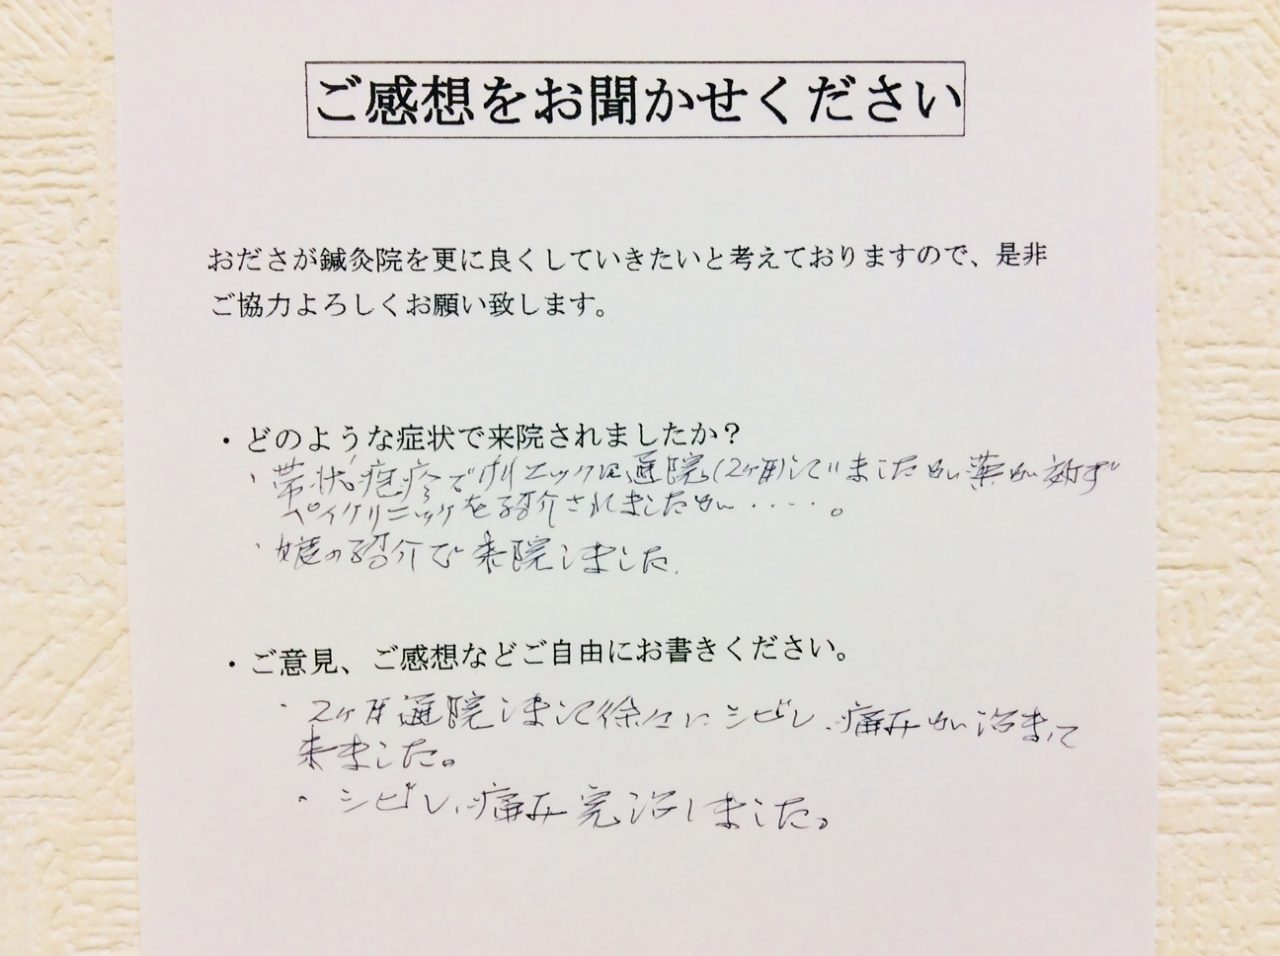 ご感想をお聞かせください
おださが鍼灸院を更に良くしていきたいと考えておりますので、是非
ご協力よろしくお願い致します。
・どのような症状で来院されましたか？
・帯状疱疹で クリニックに通院(2ヶ月)していましたが薬が効ず
ペインクリニックを紹介されましたが・・・・。
・娘の紹介で来院しました.
・ご意見、ご感想などご自由にお書きください。
・2ヶ月通院しまして徐々にシビレ、痛みが治まって
来ました。
・シビレ、痛み完治しました。